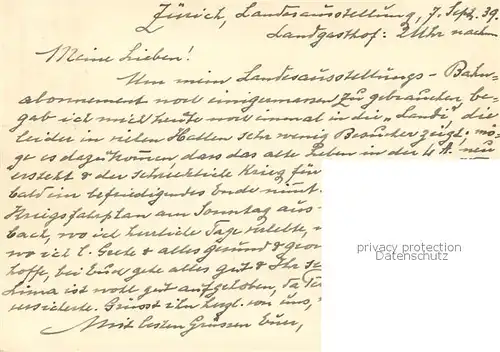 Zürich, Landesausstellung, 7. Sept. 39.
Landgasthof: 2 Uhr nachm.
Meine Lieben!
Um mein Landesausstellungs-Bahn-
abonnement noch einigermassen zu gebrauchen, be-
gab ich mich heute noch einmal in die „Landi“, die
leider in vielen Hallen sehr wenig Besucher zeigt. Mö-
ge es dazu kommen, dass das alte Leben in der L.A. neu
ersteht & der schreckliche Krieg für
bald ein befriedigendes Ende nimmt.
Kriegsfahrplan am Sonntag aus
bach, wo ich herrliche Tage verlebte,
wo ich & alles gesund &
hoffe, bei Euch gehe alles gut & Ihr
ist wohl gut aufgehoben, da
versicherte. Grüsst ihn herzl. von uns,
Mit besten Grüssen Euer,
privacy protection
Datenschutz